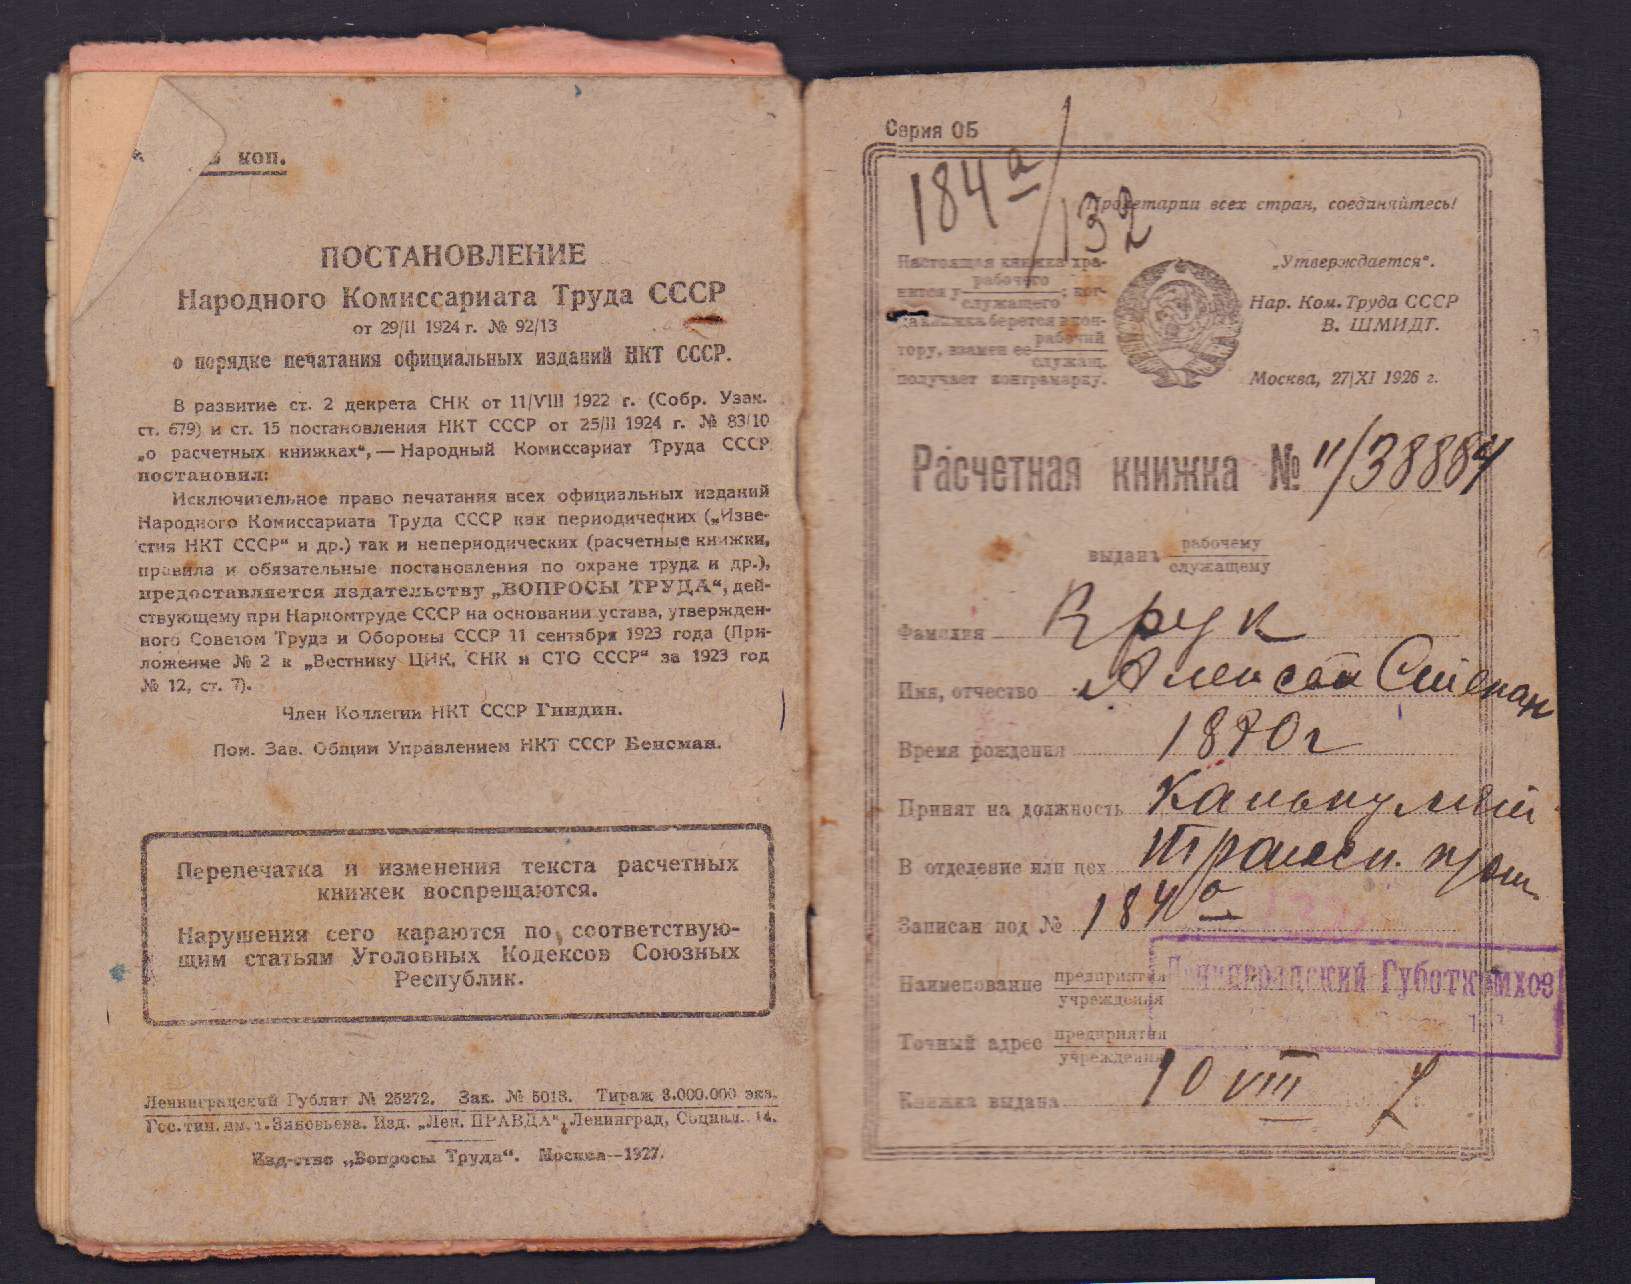 коп.
ПОСТАНОВЛЕНИЕ
Народного Комиссариата Труда СССР
от 29/II 1924 г. № 92/13
о порядке печатания официальных изданий НКТ СССР.
В развитие ст. 2 декрета СНК от 11/VIII 1922 г. (Собр. Узак.
ст. 679) и ст. 15 постановления НКТ СССР от 25/II 1924 г. № 83/10
„о расчетных книжках“, — Народный Комиссариат Труда СССР
постановил:
Исключительное право печатания всех официальных изданий
Народного Комиссариата Труда СССР как периодических („Изве-
стия НКТ СССР“ и др.) так и непериодических (расчетные книжки,
правила и обязательные постановления по охране труда и др.),
предоставляется издательству „ВОПРОСЫ ТРУДА“, дей-
ствующему при Наркомтруде СССР на основании устава, утвержден-
ного Советом Труда и Обороны СССР 11 сентября 1923 года (При-
ложение № 2 к „Вестнику ЦИК, СНК и СТО СССР“ за 1923 год
№ 12, ст. 7).
Член Коллегии НКТ СССР Гиндин.
Пом. Зав. Общим Управлением НКТ СССР Бенсман.
Перепечатка и изменения текста расчетных
книжек воспрещаются.
Нарушения сего караются по соответствую-
щим статьям Уголовных Кодексов Союзных
Республик.
Ленинградский Гублит № 25272. Зак. № 5013. Тираж 3.000.000 экз.
Гос. тип. им. т. Зиновьева. Изд. „Лен. ПРАВДА“, Ленинград, Социал. 14.
Изд-ство „Вопросы Труда“. Москва—1927.
Серия ОБ
184а/132
Пролетарии всех стран, соединяйтесь!
Настоящая книжка хра-
нится у рабочего
служащего ; ког-
да книжка берется в кон-
тору, взамен ее рабочий
служащ.
получает контрамарку.
„Утверждается“.
Нар. Ком. Труда СССР
В. ШМИДТ.
Москва, 27/XI 1926 г.
Расчетная книжка № 11/38884
выдана рабочему
служащему
Фамилия Крук
Имя, отчество Алексей Степан
Время рождения 1890 г
Принят на должность
В отделение или цех Трансп.
Записан под № 184а
Наименование предприятия
учреждения
Ленинградский Губоткомхоз
Точный адрес предприятия
учреждения
Книжка выдана 10 VIII 7 г.